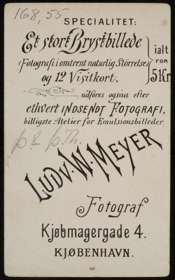 168,55
SPECIALITET:
Et stort Brystbillede
(Fotografi i omtrent naturlig Størrelse)
og 12 Visitkort.
ialt
FOR
5 Kr.
udføres ogsaa efter
ethvert INDSENDT FOTOGRAFI.
billigste Atelier for Emulsionsbilleder.
LUDV. W. MEYER
Fotograf
Kjøbmagergade 4.
KJØBENHAVN.